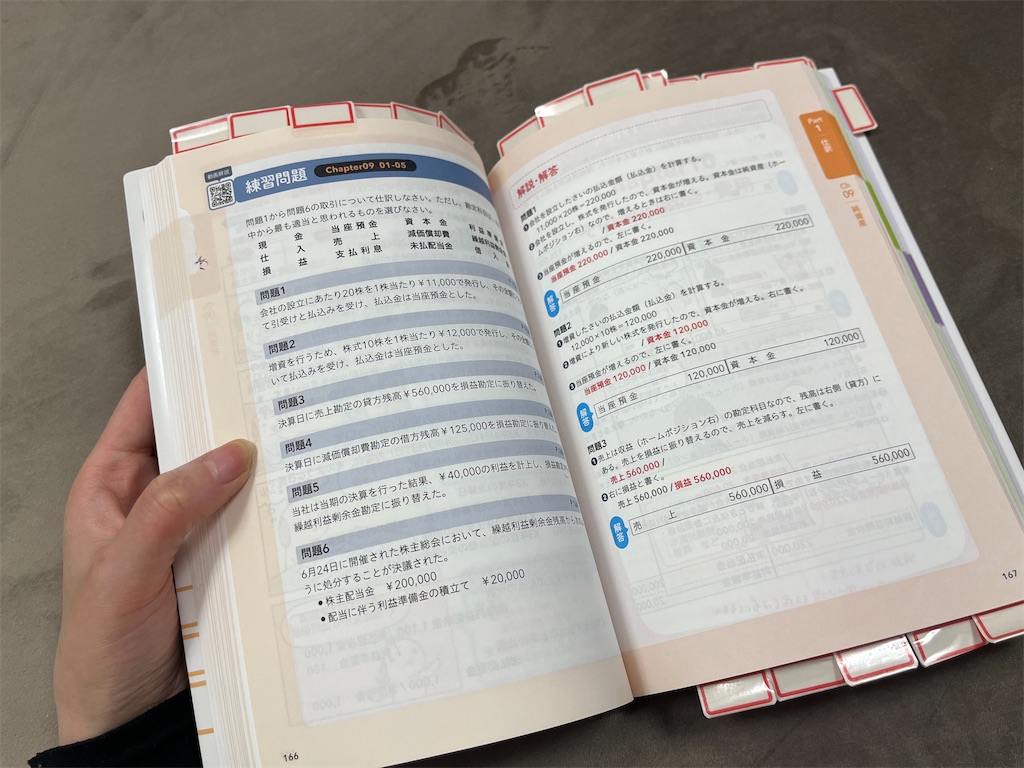 動画解説
練習問題 Chapter09 01-05
問題1から問題6の取引について仕訳しなさい。ただし、勘定科目は、
中から最も適当と思われるものを選びなさい。
現 金 当座預金 資 本 金
仕 入 売 上 減価償却費
損 益 支払利息 未払配当金
問題1
会社の設立にあたり20株を1株当たり¥11,000で発行し、その
て引受けと払込みを受け、払込金は当座預金とした。
問題2
増資を行うため、株式10株を1株当たり¥12,000で発行し、その
いて払込みを受け、払込金は当座預金とした。
問題3
決算日に売上勘定の貸方残高¥560,000を損益勘定に振り替えた。
問題4
決算日に減価償却費勘定の借方残高¥125,000を損益勘定に振り替え
問題5
当社は当期の決算を行った結果、¥40,000の利益を計上し、損益勘定
繰越利益剰余金勘定に振り替えた。
問題6
6月24日に開催された株主総会において、繰越利益剰余金残高から
うに処分することが決議された。
•株主配当金 ¥200,000
•配当に伴う利益準備金の積立て ¥20,000
166
解説・解答
問題1
❶会社を設立したさいの払込金額(払込金)を計算する。
11,000×20株=220,000
❷会社を設立し、株式を発行したので、資本金が増える。資本金は純資産(ホー
ムポジション右)なので、増えるときは右に書く。
/資本金 220,000
❸当座預金が増えるので、左に書く。
当座預金 220,000 / 資本金 220,000
解答 当座預金 220,000 資 本 金 220,000
問題2
❶増資したさいの払込金額(払込金)を計算する。
12,000×10株=120,000
❷増資により新しい株式を発行したので、資本金が増える。右に書く。
/資本金 120,000
❸当座預金が増えるので、左に書く。
当座預金 120,000 / 資本金 120,000
解答 当座預金 120,000 資 本 金 120,000
問題3
❶売上は収益(ホームポジション右)の勘定科目なので、残高は右側(貸方)に
ある。売上を損益に振り替えるので、売上を減らす。左に書く。
売上 560,000 /
❷右に損益と書く。
売上 560,000 / 損益 560,000
解答 売 上 560,000 損 益 560,000
Part
1
仕訳
Ch
09
純資産
167